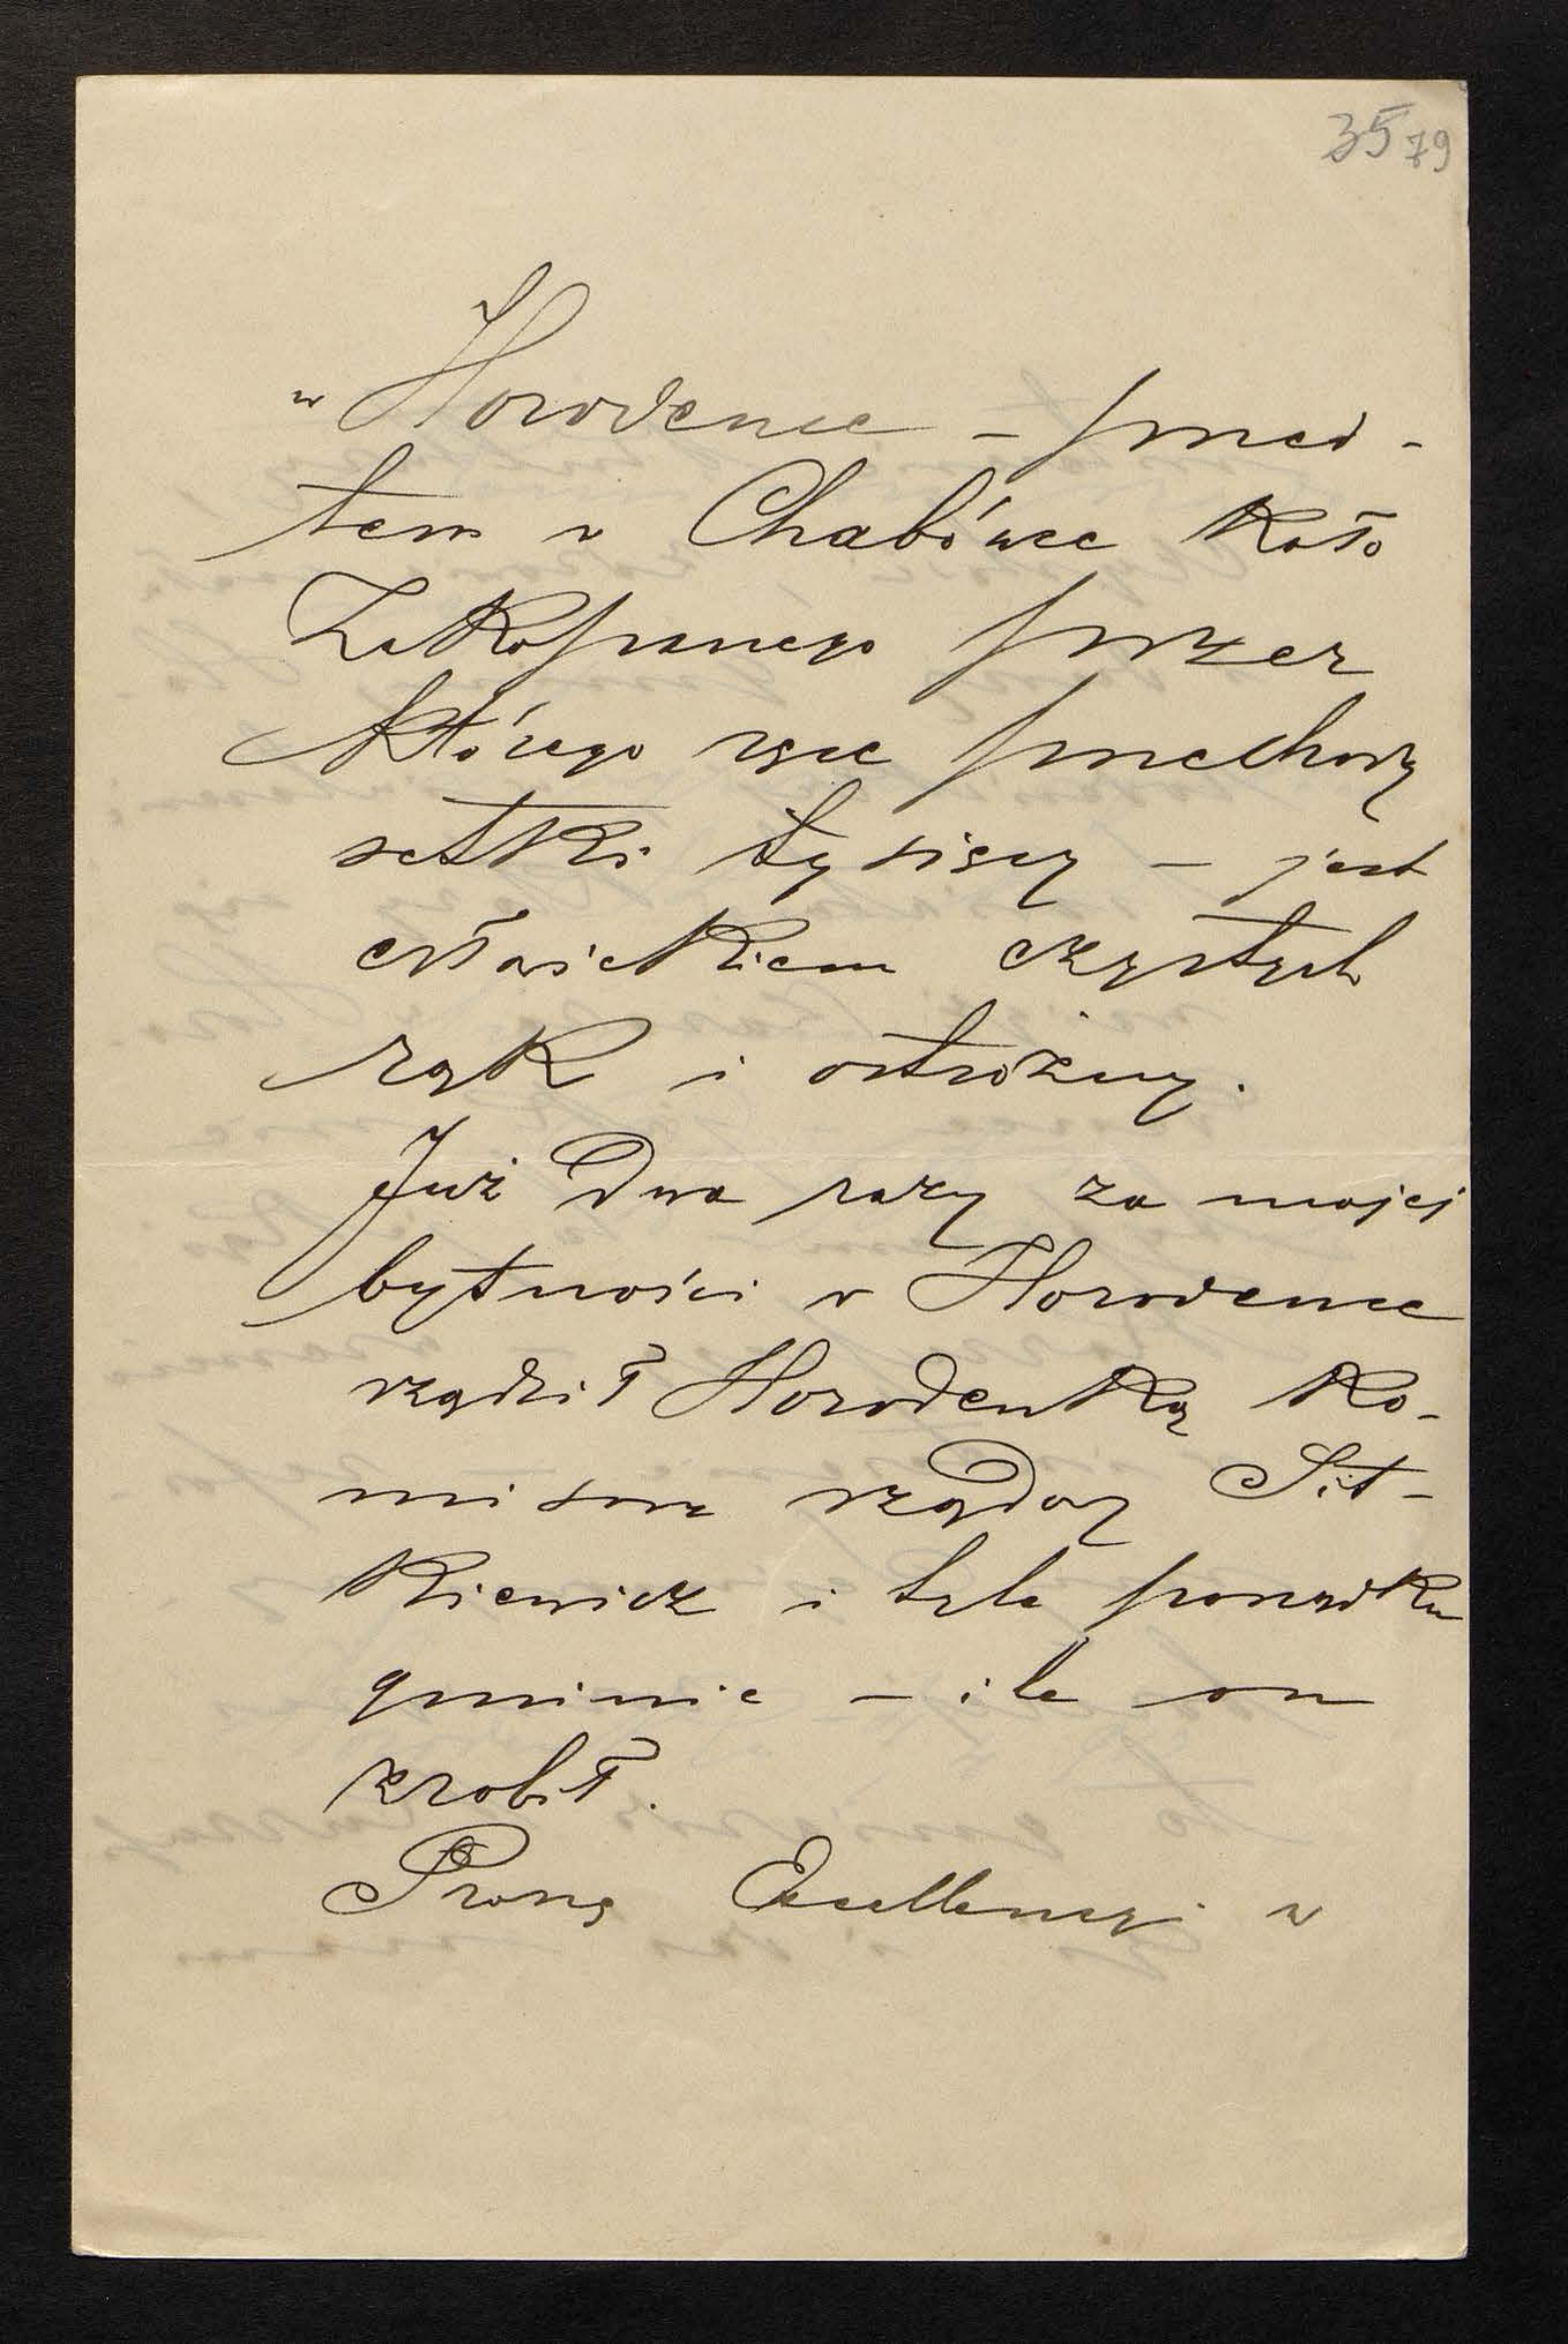 35 79
w Horodence – przed-
tem w Chabówce koło
Zakopanego przez
którego ręce przechodzą
setki tysięcy – jest
człowiekiem czystych
rąk i ostrożny.
Już dwa razy za mojej
bytności w Horodence
rządził Horodenką ko-
misarz rządowy Sit-
kiewicz i tyle porządku
gminie – ile on
zrobił.
Proszę Excellencyi w